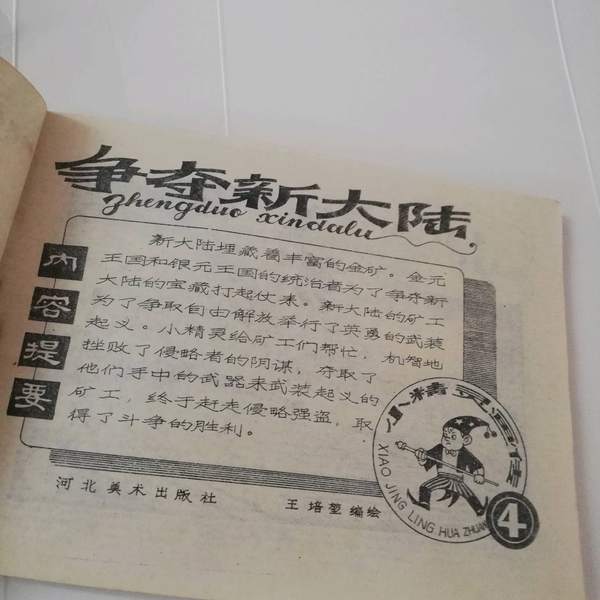 争夺新大陆
Zhengduo xindalu
内容提要
新大陆埋藏着丰富的金矿。金元
王国和银元王国的统治者为了争夺新
大陆的宝藏打起仗来。新大陆的矿工
为了争取自由解放举行了英勇的武装
起义。小精灵给矿工们帮忙，机智地
挫败了侵略者的阴谋，夺取了
他们手中的武器来武装起义的
矿工，终于赶走侵略强盗，取
得了斗争的胜利。
小精灵画传
XIAO JING LING HUA ZHUAN
4
河北美术出版社
王培堃编绘